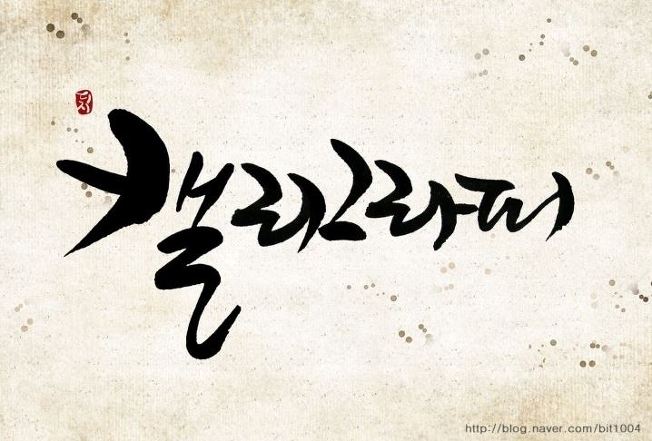 캘리그라피
http://blog.naver.com/bit1004